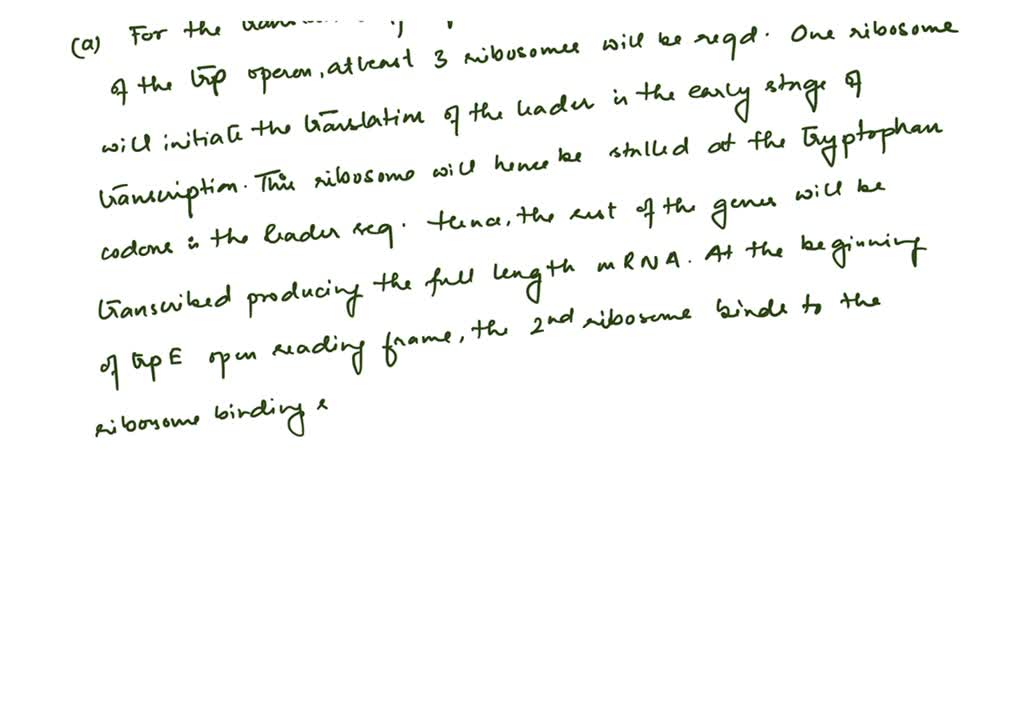 (a) For the
of the trp operon, atleast 3 ribosomes will be reqd. One ribosome
will initiate the translation of the leader in the early stage of
transcription. This ribosome will hence be stalled at the tryptophan
codons in the leader seq. Hence, the rest of the genes will be
transcribed producing the full length mRNA. At the beginning
of trpE open reading frame, the 2nd ribosome binds to the
ribosome binding s